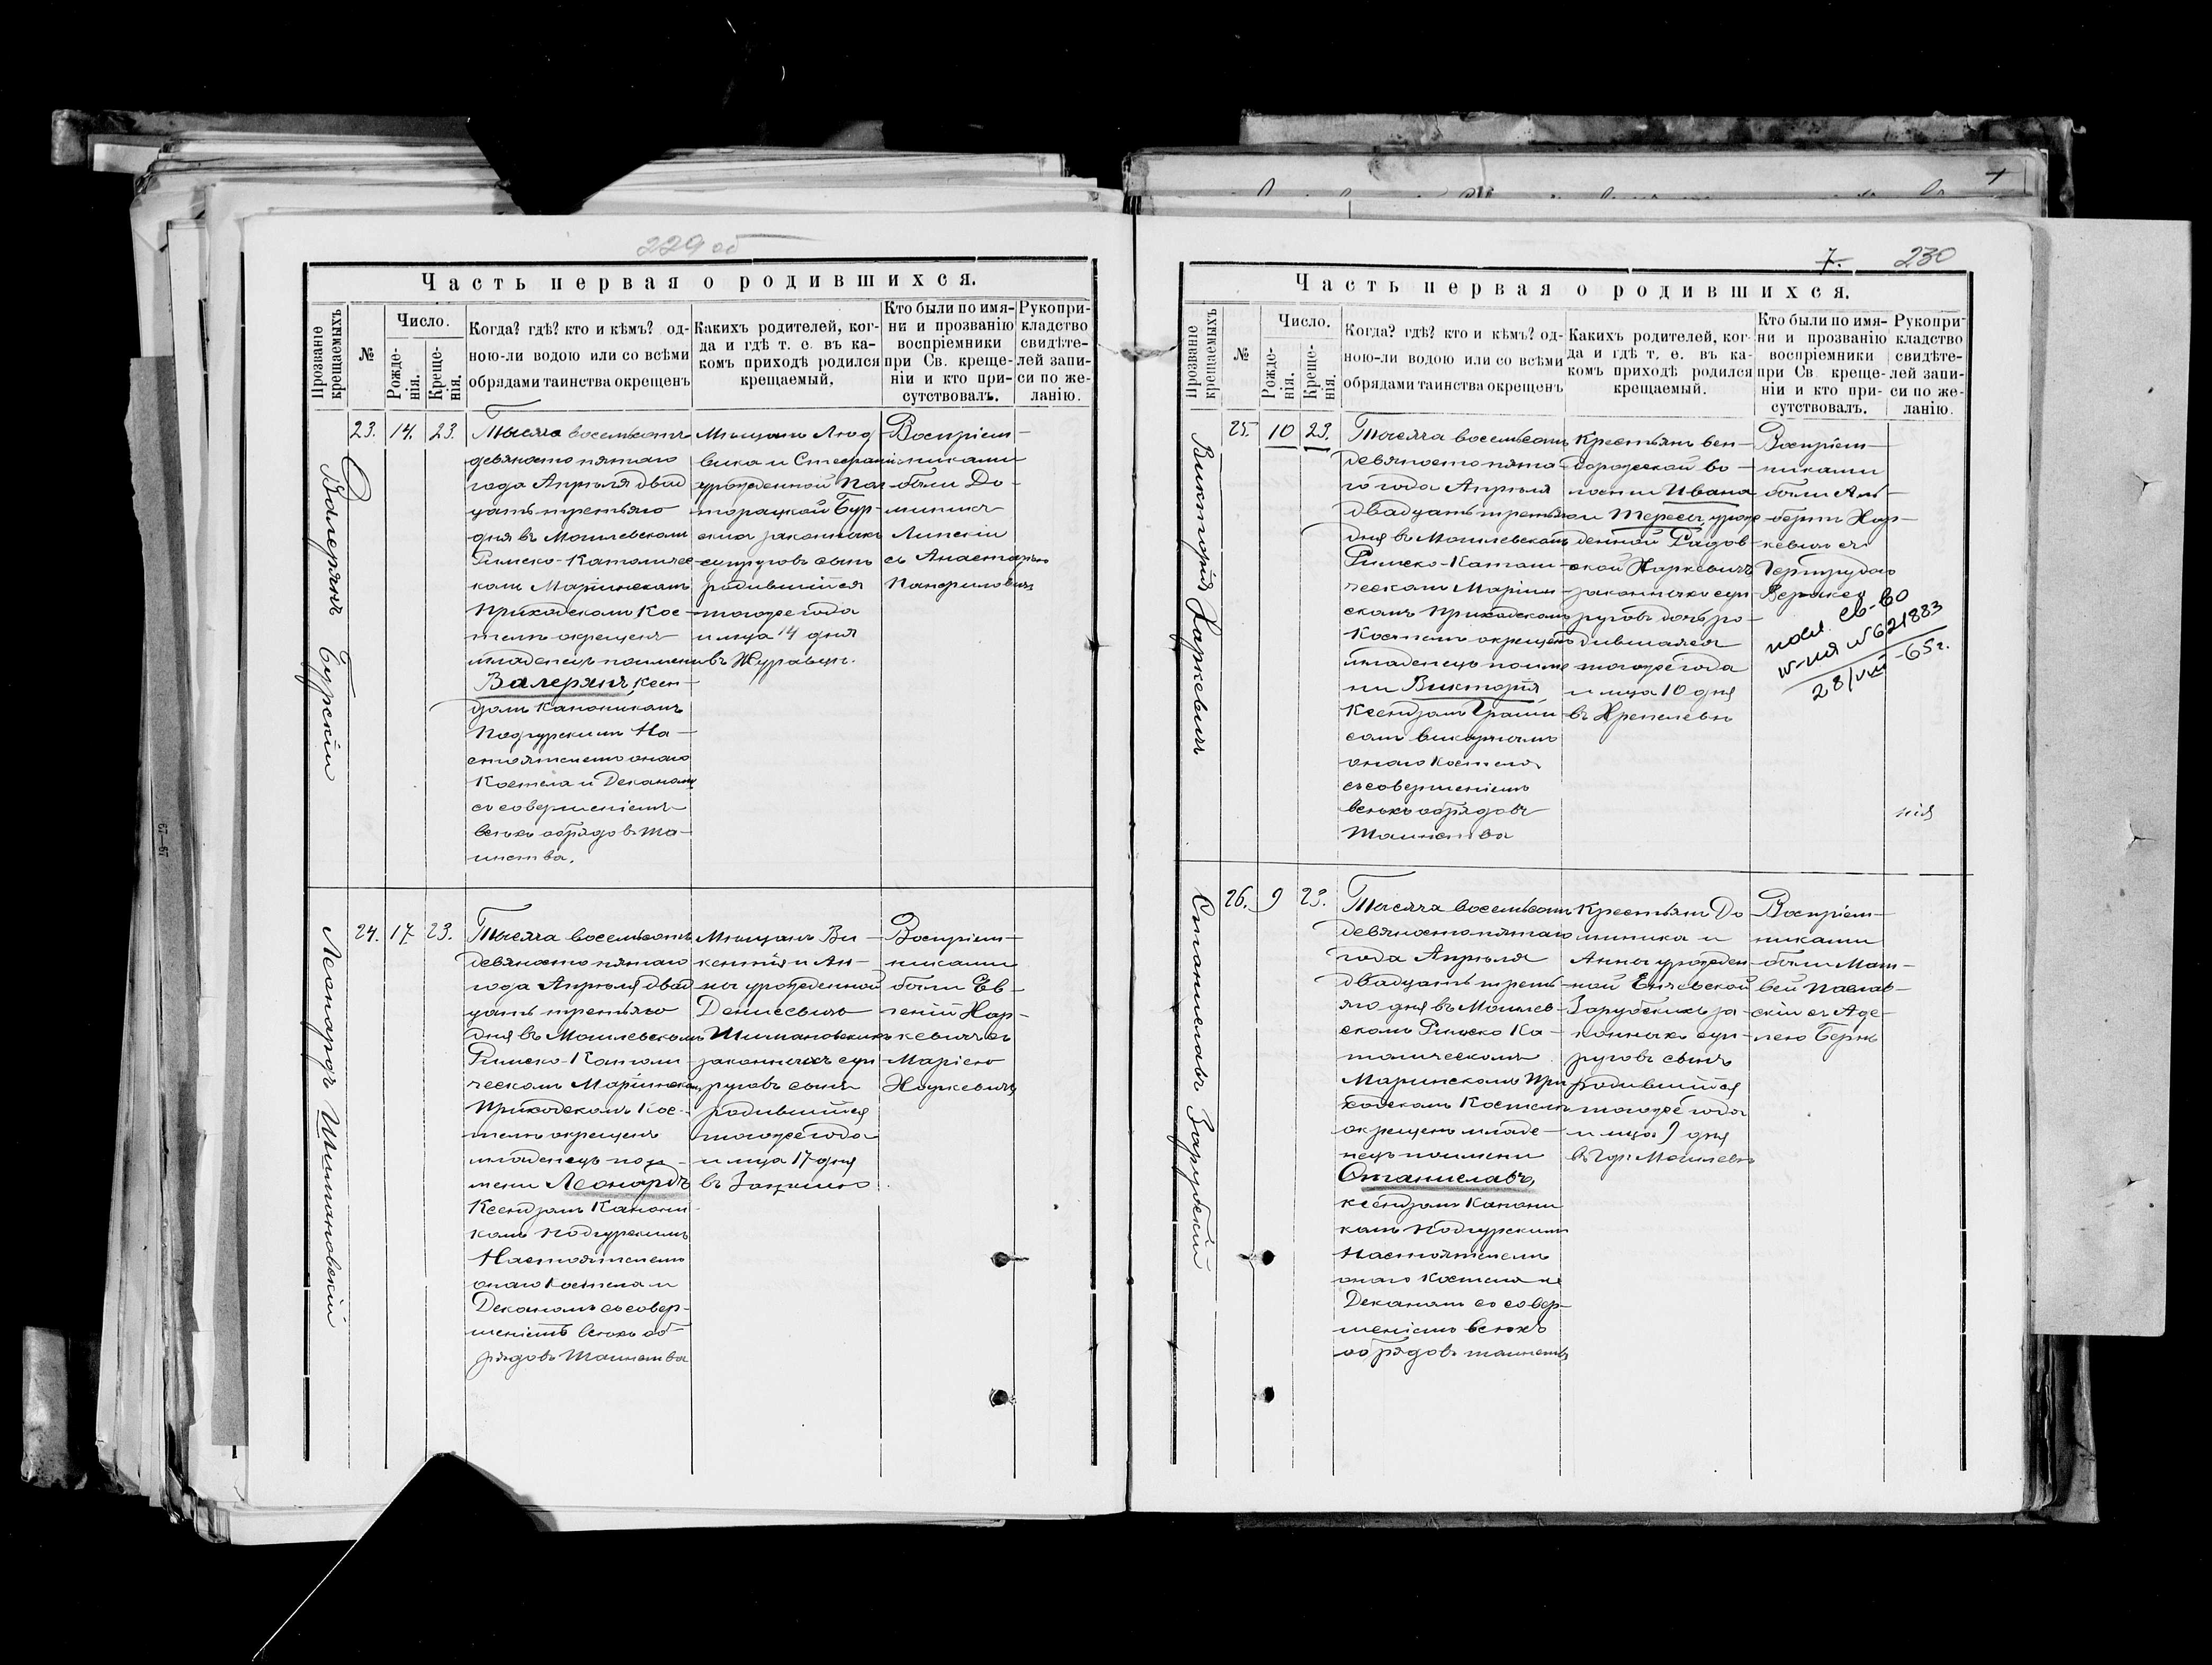 229 об
Часть первая о родившихся.
Прозваніе крещаемыхъ
№
Число.
Рожде-
нія.
Креще-
нія.
Когда? гдѣ? кто и кѣмъ? од-
ною-ли водою или со всѣми
обрядами таинства окрещенъ
Какихъ родителей, ког-
да и гдѣ т. е. въ ка-
комъ приходѣ родился
крещаемый.
Кто были по имя-
ни и прозванію
воспріемники
при Св. креще-
ніи и кто при-
сутствовалъ.
Рукопри-
кладство
свидѣте-
лей запи-
си по же-
ланію.
Валерянъ Бурскій
23.
14.
23.
Тысяча восемьсотъ
девяносто пятаго
года Апрѣля двад
цать третьяго
дня въ Могилевскомъ
Римско-Католичес
комъ Маріинскомъ
Приходскомъ Кос-
телѣ окрещенъ
младенецъ по имени
Валерянъ, Ксен-
дзомъ Каноникомъ
Подгурскимъ На-
стоятелемъ онаго
Костела и Деканомъ
съ совершеніемъ
всѣхъ обрядовъ Та-
инства.
Мѣщанъ Люд
вика и Стефаніи
урожденной
Бур-
скихъ законныхъ
супруговъ сынъ
родившійся
тогоже года
и мца 14 дня
въ Журавцѣ.
Воспріем-
никами
были До-
миникъ
Липскій
съ Анастазіею
Панфиловичъ
Леонардъ Шимановскій
24.
17.
23.
Тысяча восемьсотъ
девяносто пятаго
года Апрѣля двад
цать третьяго
дня въ Могилевскомъ
Римско-Католи
ческомъ Маріинскомъ
Приходскомъ Кос-
телѣ окрещенъ
младенецъ по и-
мени Леонардъ
Ксендзомъ Канони
комъ Подгурскимъ
Настоятелемъ
онаго Костела и
Деканомъ съ совер-
шеніемъ всѣхъ об-
рядовъ Таинства
Мѣщанъ Ви-
кентія и Ан-
ны урожденной
Денисевичъ
Шимановскихъ
законныхъ суп
руговъ сынъ
родившійся
тогоже года
и мца 17 дня
въ
Воспріем-
никами
были Ев-
геній Нар-
кевичъ съ
Маріею
Наркевичъ
7.
230
Часть первая о родившихся.
Прозваніе крещаемыхъ
№
Число.
Рожде-
нія.
Креще-
нія.
Когда? гдѣ? кто и кѣмъ? од-
ною-ли водою или со всѣми
обрядами таинства окрещенъ
Какихъ родителей, ког-
да и гдѣ т. е. въ ка-
комъ приходѣ родился
крещаемый.
Кто были по имя-
ни и прозванію
воспріемники
при Св. креще-
ніи и кто при-
сутствовалъ.
Рукопри-
кладство
свидѣте-
лей запи-
си по же-
ланію.
Викторія Харкевичъ
25.
10
23.
Тысяча восемьсотъ
девяносто пята-
го года Апрѣля
двадцать третьяго
дня въ Могилевскомъ
Римско-Католи
ческомъ Маріин-
скомъ Приходскомъ
Костелѣ окрещенъ
младенецъ по име
ни Викторія
Ксендзомъ
викарнымъ
онаго Костела
съ совершеніемъ
всѣхъ обрядовъ
Таинства
Крестьянъ вен-
дорожской во-
лости Ивана
и Тересы, урож
денной Садов-
ской Харкевичъ
законныхъ суп-
руговъ дочь ро-
дившаяся
тогоже года
и мца 10 дня
въ
Воспріем-
никами
были Аль-
бертъ Хар-
кевичъ съ
Гертрудою
посл. св-во
№ 621883
28/VIII-65г.
нія
Станиславъ Зарубскій
26.
9
23.
Тысяча восемьсотъ
девяносто пятаго
года Апрѣля
двадцать треть-
яго дня въ Могилев-
скомъ Римско Ка-
толическомъ
Маріинскомъ При
ходскомъ Костелѣ
окрещенъ младе-
нецъ по имени
Станиславъ,
ксендзомъ Канони
комъ Подгурскимъ
Настоятелемъ
онаго Костела и
Деканомъ со совер-
шеніемъ всѣхъ
обрядовъ таинствъ
Крестьянъ До
миника и
Анны урожден-
ной
Зарубскихъ за-
конныхъ суп-
руговъ сынъ
родившійся
тогоже года
и мца 9 дня
въ гор: Могилевѣ
Воспріем-
никами
были Мат-
вей
съ Аде-
лею